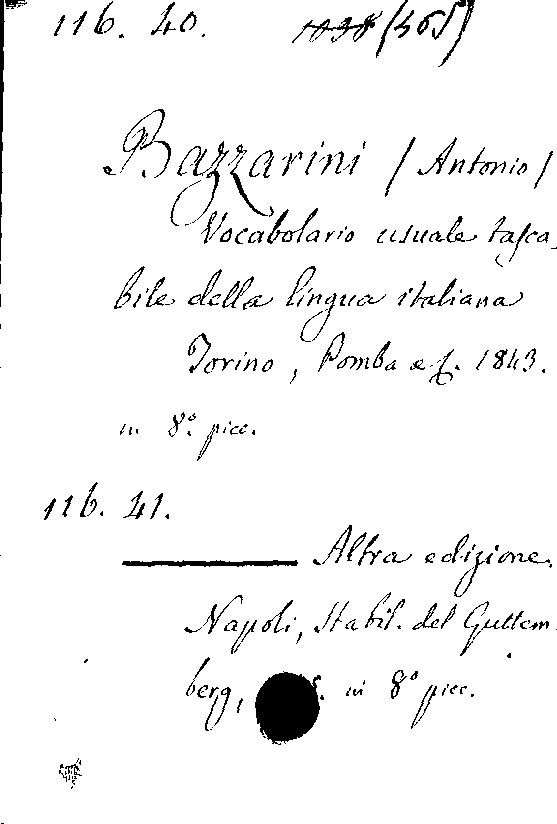 116. 40. 1038 (465)
Bazzarini / Antonio /
Vocabolario usuale tasca-
bile della lingua italiana
Torino, Pomba e C. 1843.
in 8.° picc.
116. 41.
Altra edizione.
Napoli, Stabil. del Guttem-
berg, in 8° picc.